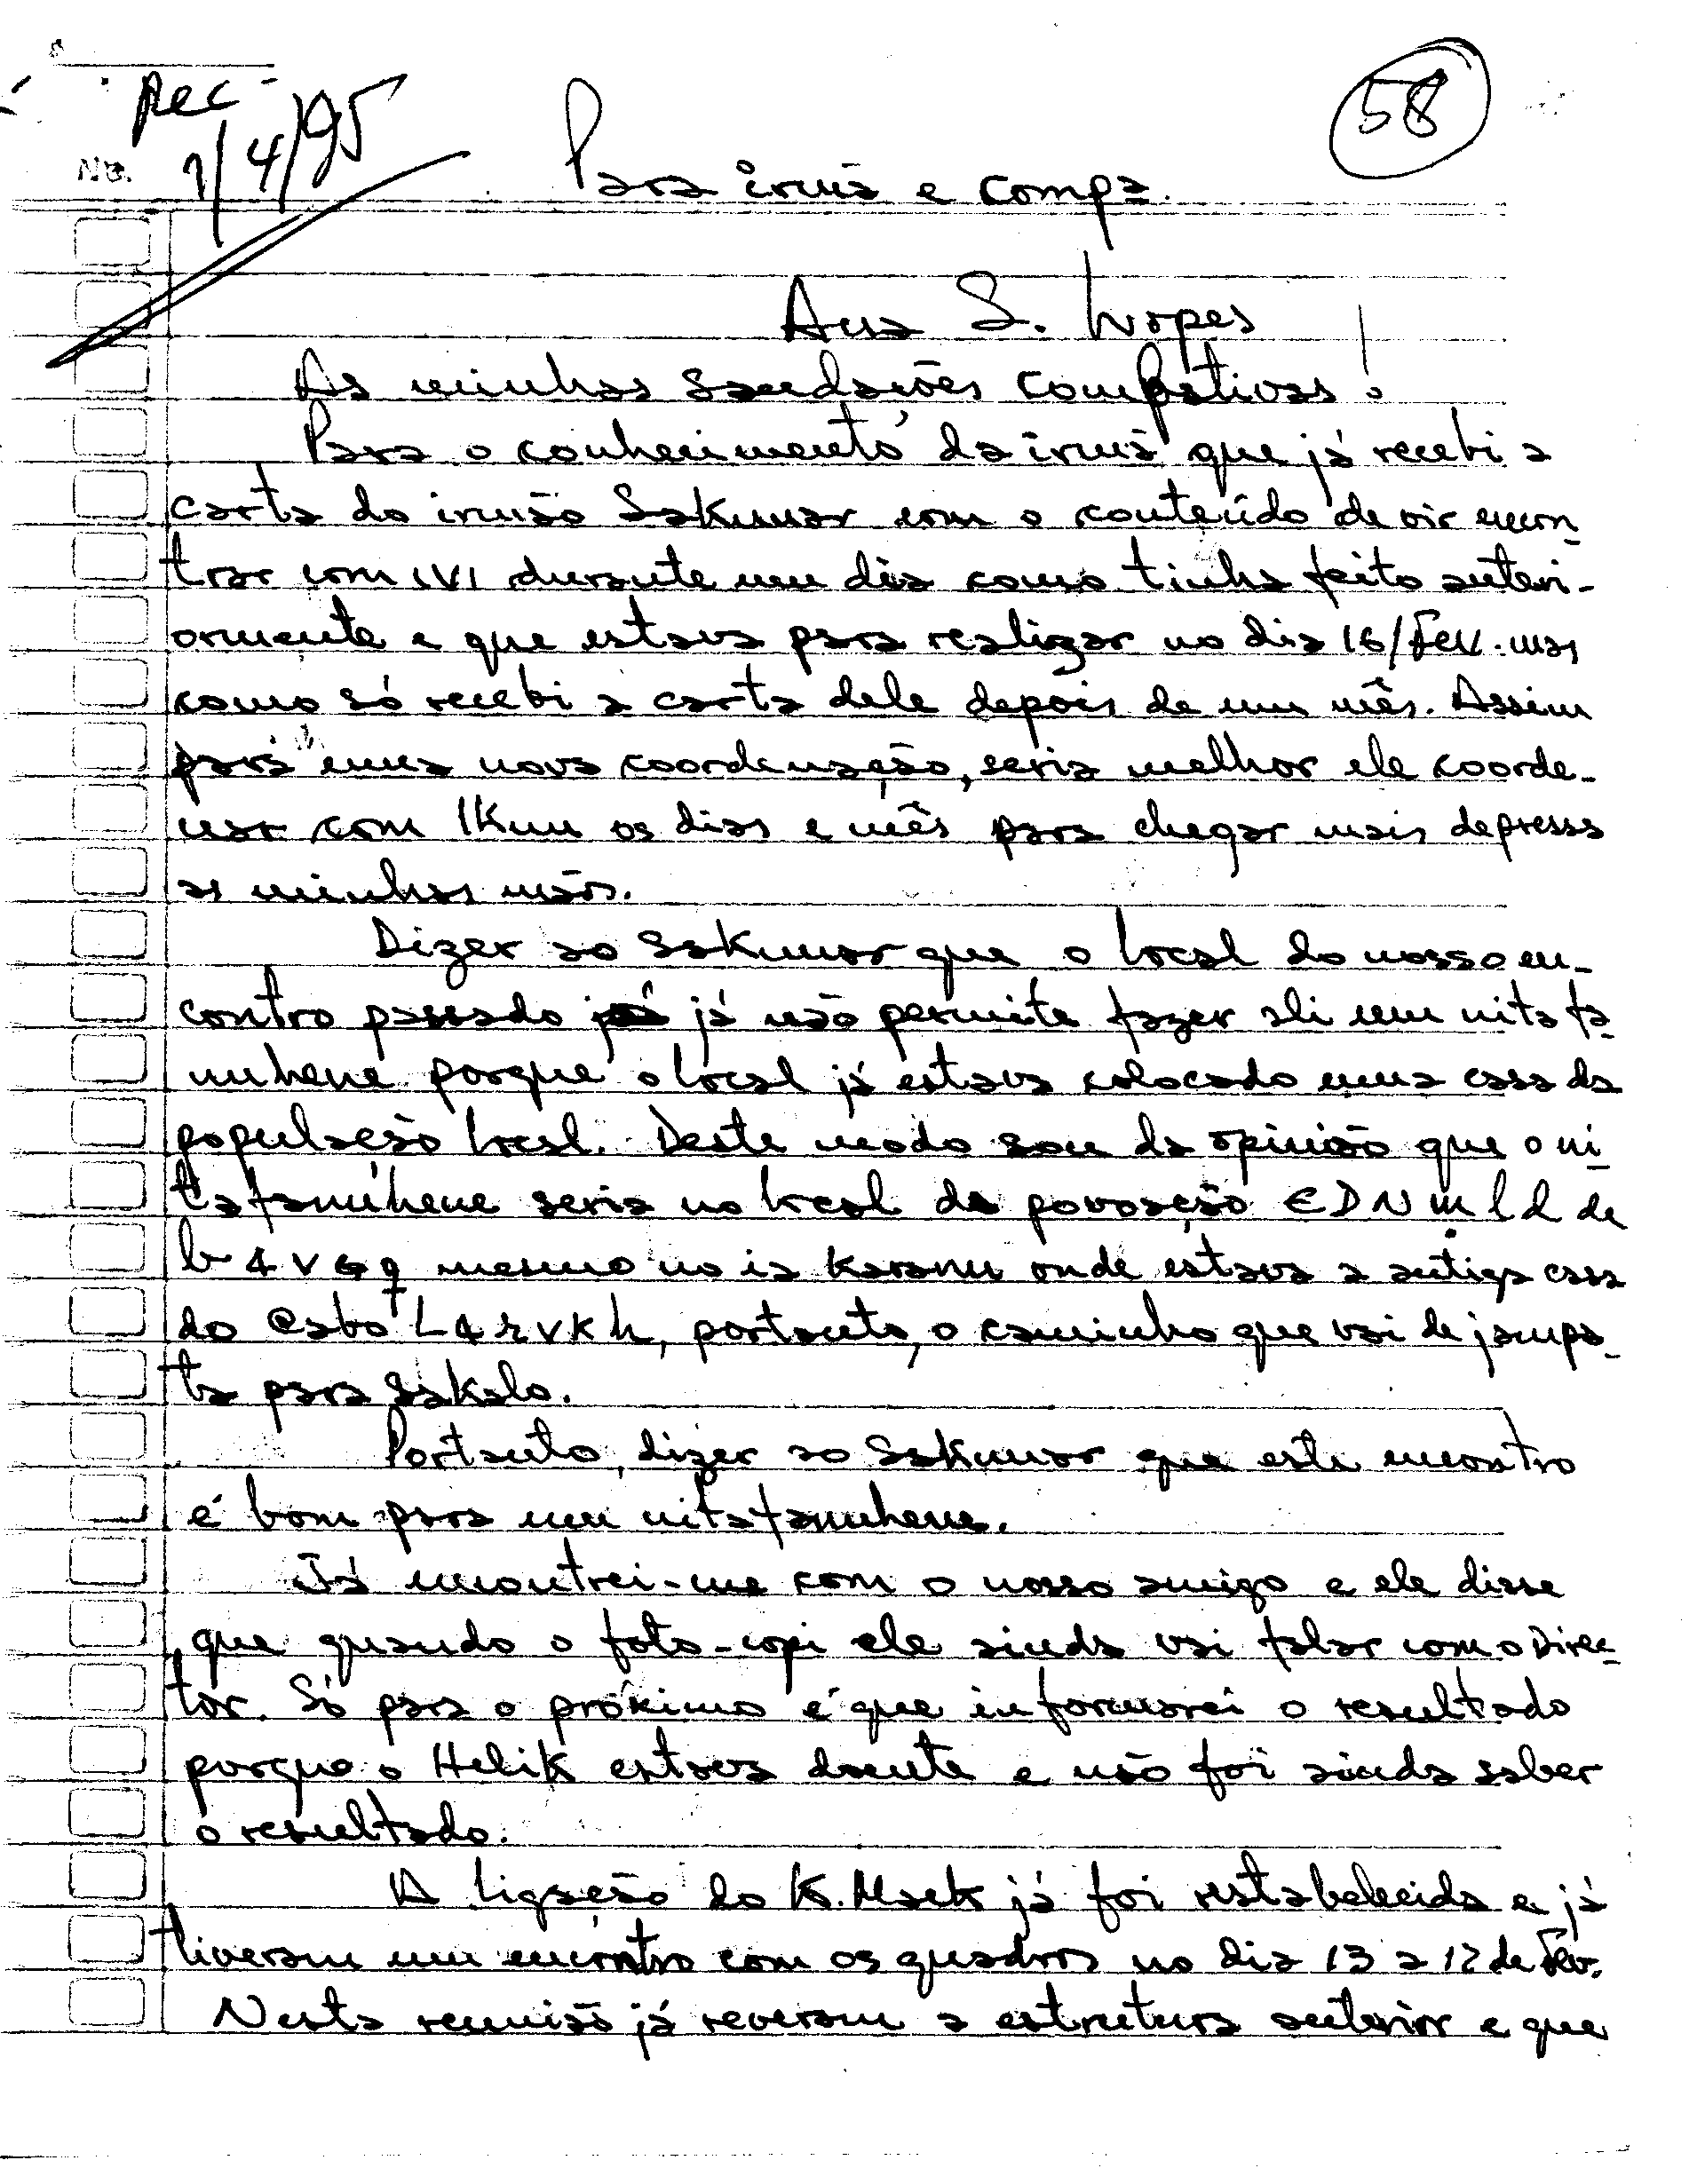 rec
1/4/95
58
No.
Para irmã e compa.
Ana S. Lopes
As minhas saudações compativas!
Para o conhecimento da irmã que já recebi a
carta do irmão Sakumar com o conteúdo de vir encon-
trar com IVI durante um dia como tinha feito anteri-
ormente e que estava para realizar no dia 16/Fev. mas
como só recebi a carta dele depois de um mês. Assim
para uma nova coordenação, seria melhor ele coorde-
nar com IKun os dias e mês para chegar mais depressa
as minhas mãos.
Dizer ao Sakumar que o local do nosso en-
contro passado já não permite fazer ali um nita fa-
nuhene porque o local já estava colocado uma casa da
população local. Deste modo sou da opinião que o ni-
tafanuhene seria no local da povoação EDNmld de
mesmo no ia Karanu onde estava a antiga casa
do Cabo, portanto, o caminho que vai de jampa-
ta para Sakalo.
Portanto, dizer ao Sakumar que este encontro
é bom para um nitafanuhene.
Já encontrei-me com o nosso amigo e ele disse
que quando o foto-copi ele ainda vai falar com o Direc-
tor. Só para o próximo é que informarei o resultado
porque o Helik estava doente e não foi ainda saber
o resultado.
A ligação do K. Maek já foi restabelecida e já
tiveram um encontro com os quadros no dia 13 a 17 de Fev.
Nesta reunião já reveram a estrutura anterior e que